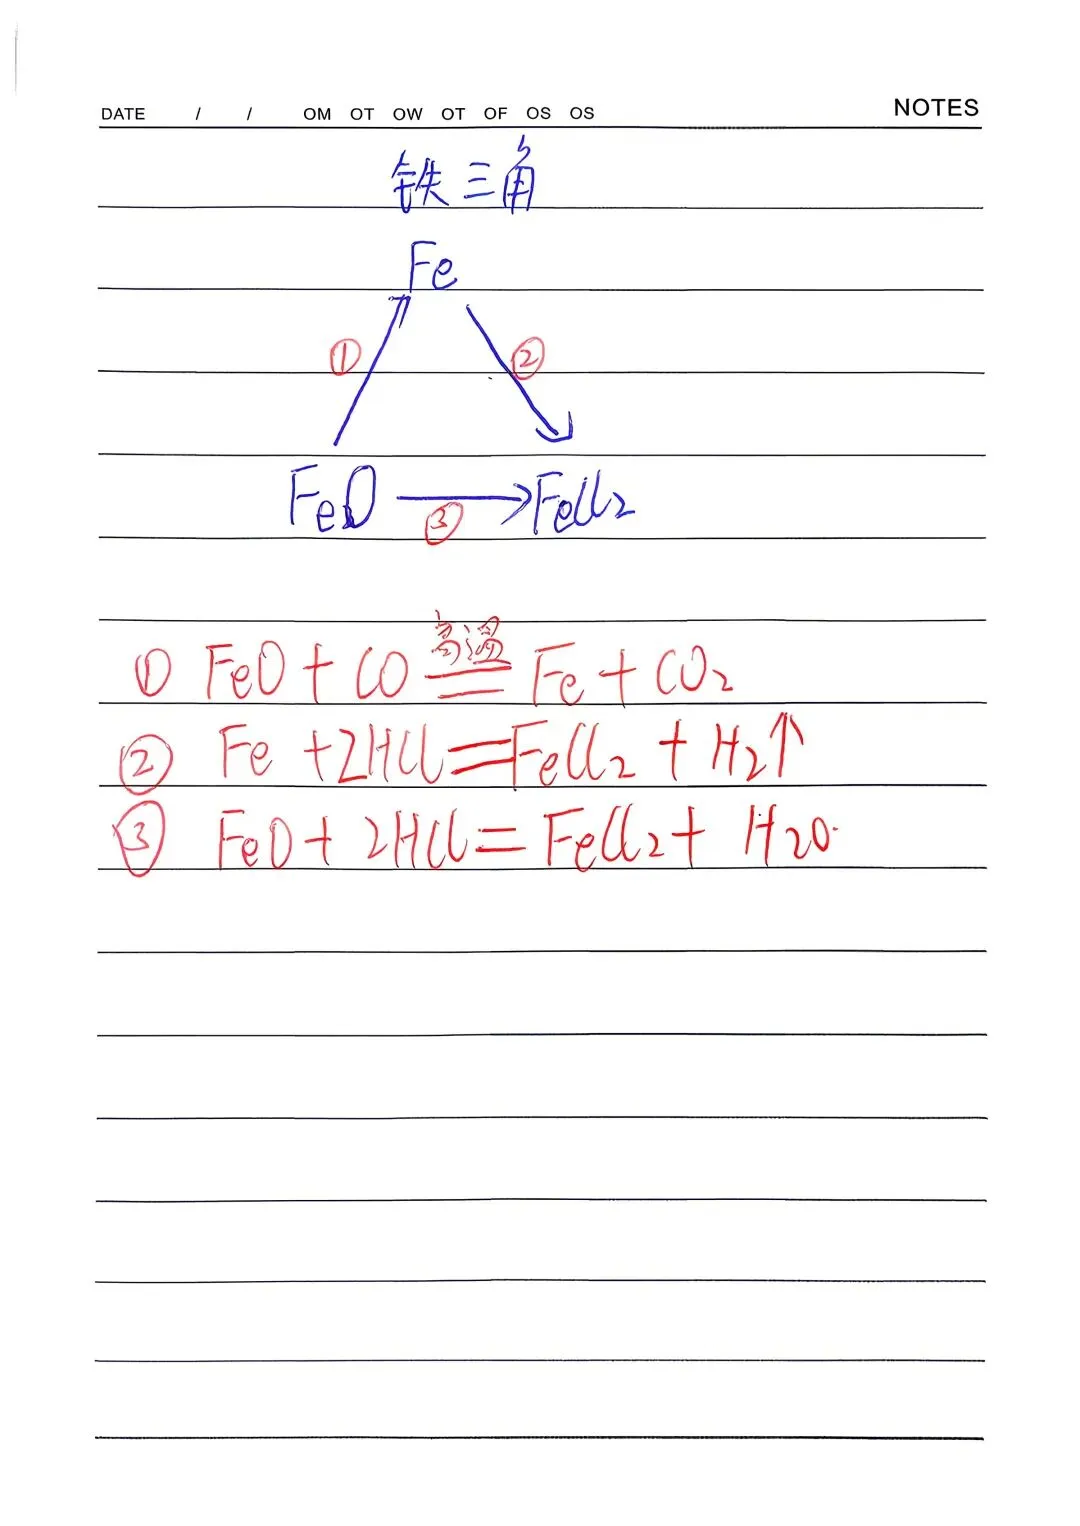 DATE / / OM OT OW OT OF OS OS NOTES
铁三角
Fe
① ②
FeO → FeCl₂
③
① FeO + CO 高温 = Fe + CO₂
② Fe + 2HCl = FeCl₂ + H₂↑
③ FeO + 2HCl = FeCl₂ + H₂O.